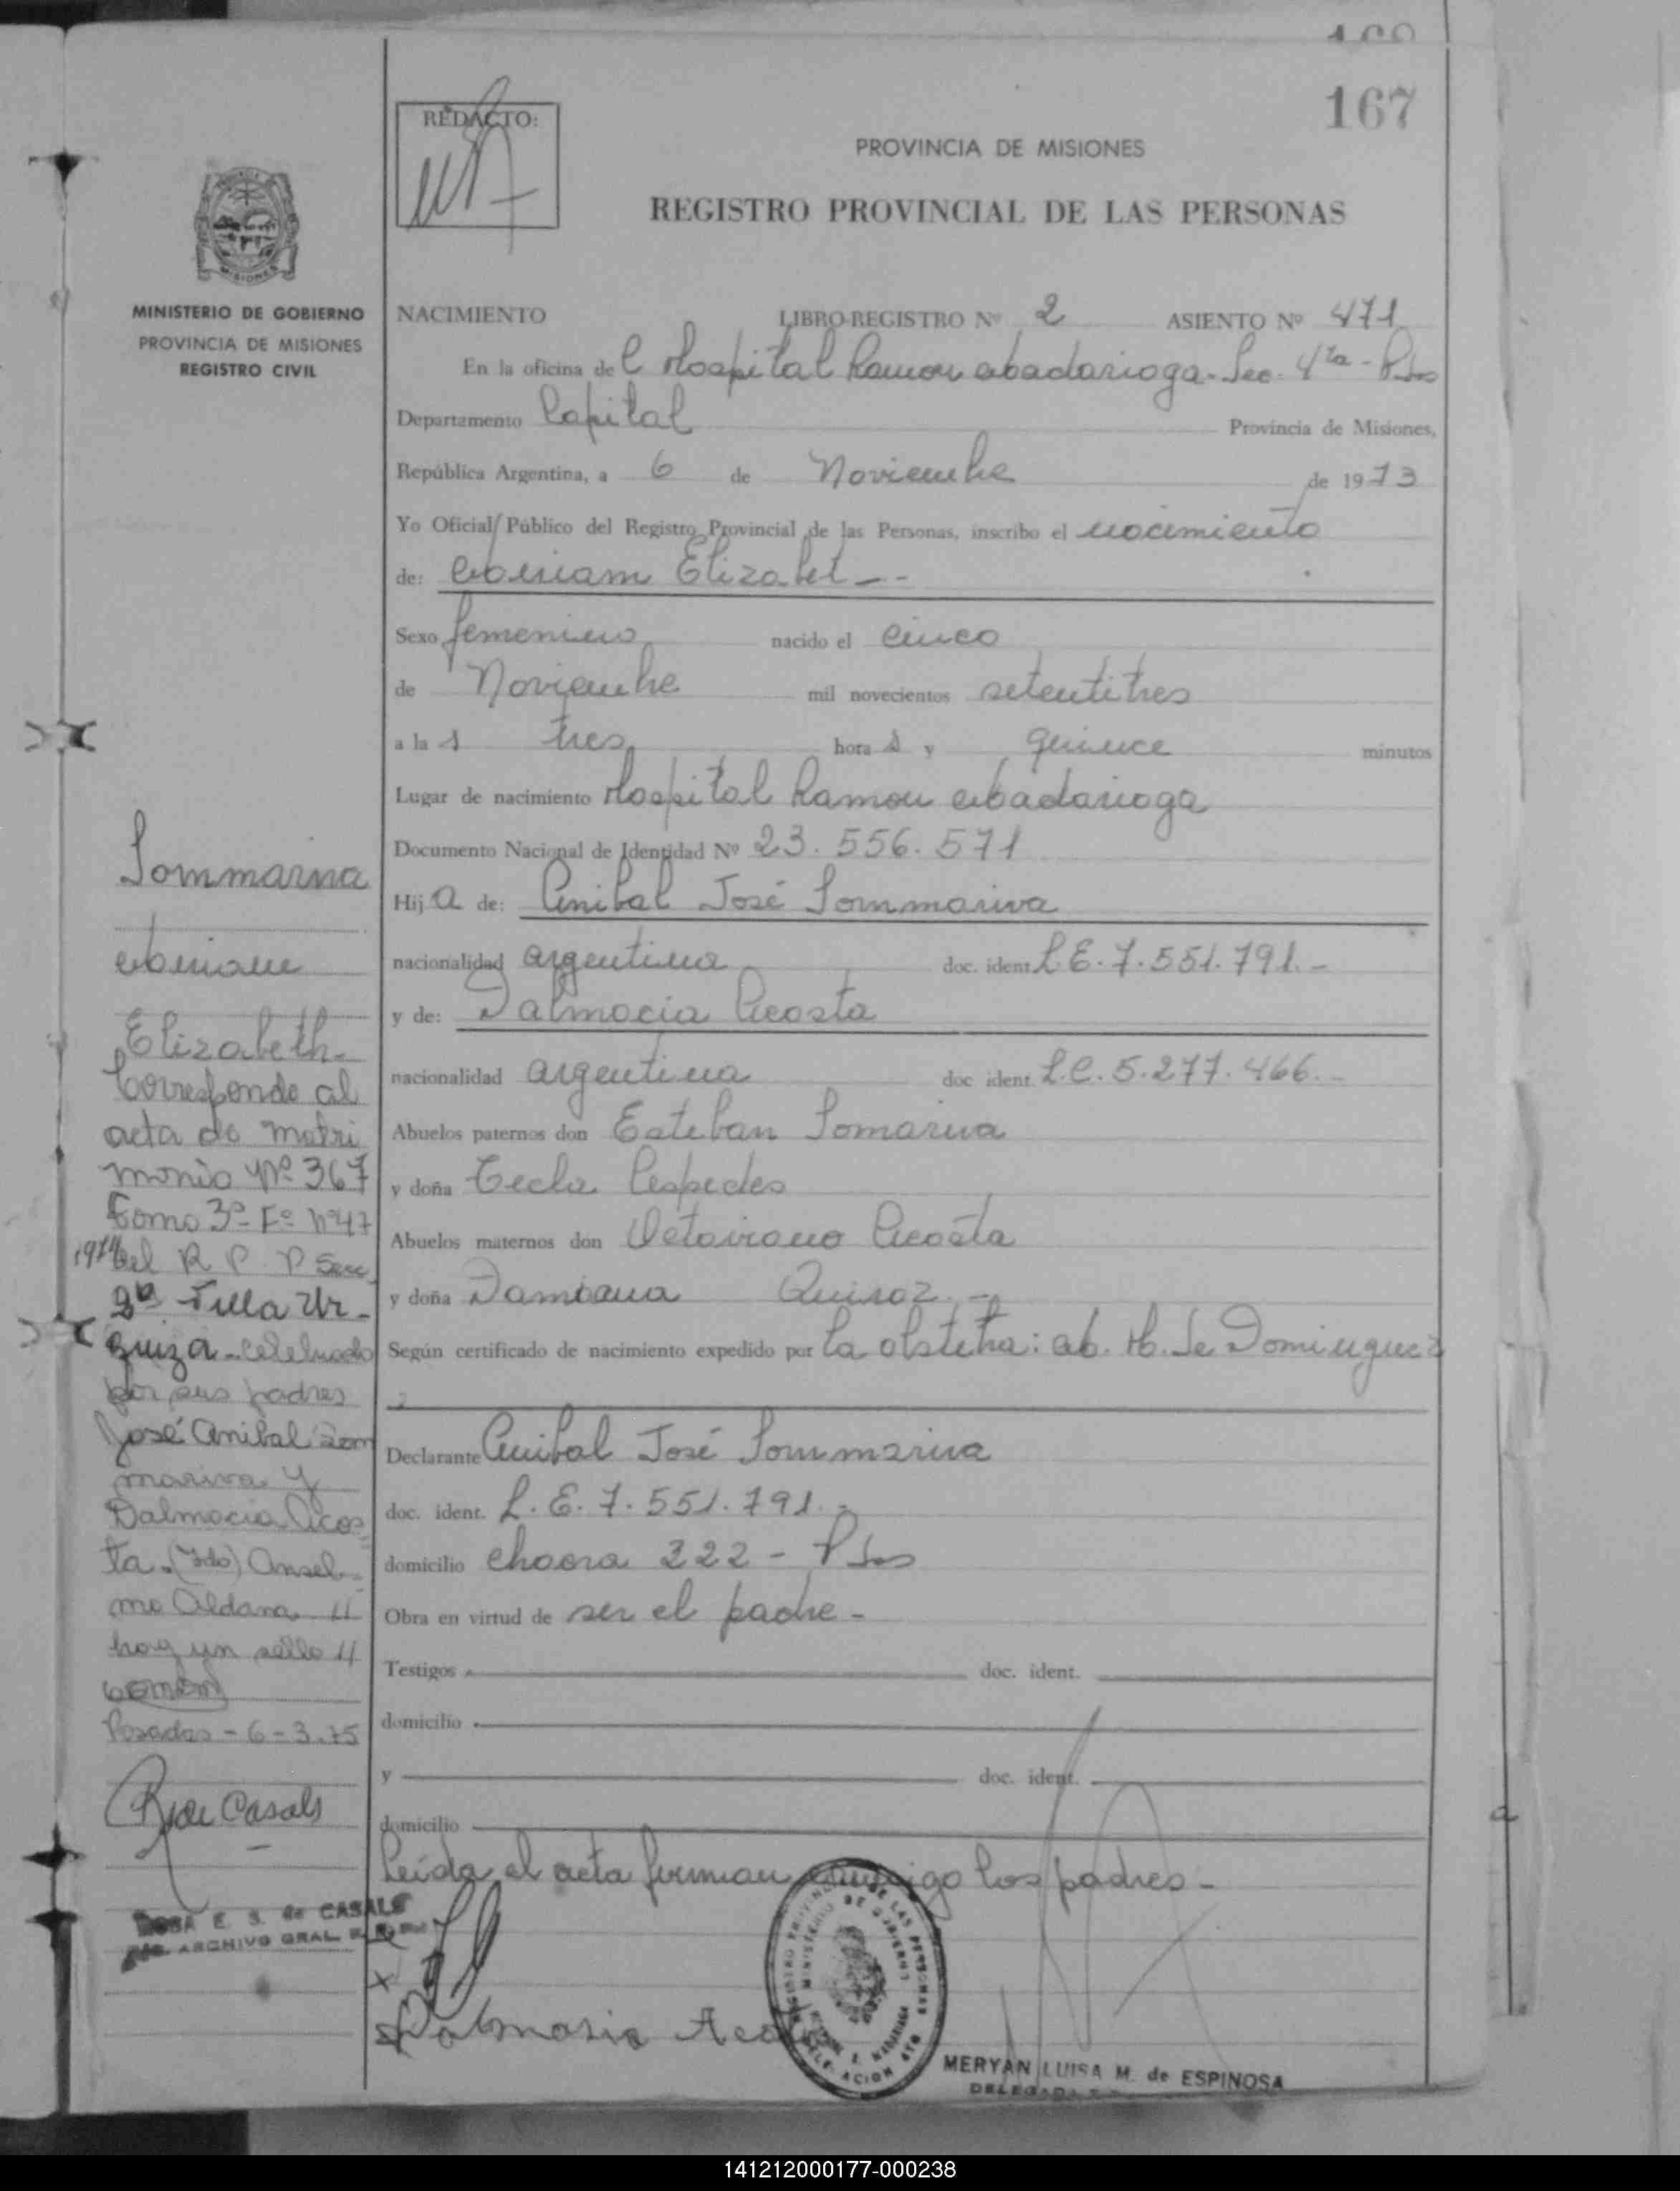 167
REDACTO:
PROVINCIA DE MISIONES
REGISTRO PROVINCIAL DE LAS PERSONAS
MISIONES
MINISTERIO DE GOBIERNO
PROVINCIA DE MISIONES
REGISTRO CIVIL
NACIMIENTO LIBRO-REGISTRO Nº 2 ASIENTO Nº 471
En la oficina del Hospital Ramon Madariaga - Sec. 4ta - Pdas
Departamento Capital Provincia de Misiones,
República Argentina, a 6 de Noviembre de 1973
Yo Oficial Público del Registro Provincial de las Personas, inscribo el nacimiento
de: Miriam Elizabet --
Sexo femenino nacido el cinco
de Noviembre mil novecientos setentitres
a las tres horas y quince minutos
Lugar de nacimiento Hospital Ramon Madariaga
Documento Nacional de Identidad Nº 23.556.571
Hija de: Anibal José Sommariva
nacionalidad argentina doc. ident. L.E. 7.551.791.-
y de: Dalmacia Acosta
nacionalidad argentina doc ident L.C. 5.277.466.-
Abuelos paternos don Esteban Somariva
y doña Tecla Cespedes
Abuelos maternos don Octaviano Acosta
y doña Damiana Quiroz.-
Según certificado de nacimiento expedido por la obstetra: M. H. de Dominguez
Declarante Anibal José Sommariva
doc. ident. L.E. 7.551.791.-
domicilio chacra 222 - Pdas
Obra en virtud de ser el padre -
Testigos doc. ident.
domicilio
y doc. ident.
domicilio
Leída el acta firman conmigo los padres -
Dalmasia Acosta
MERYAN LUISA M. de ESPINOSA
DELEGADA
Sommariva
Miriam
Elizabeth -
Corresponde al
acta de matri
monio Nº 367
Tomo 3º - Fº Nº 47
1974 del R P P Secc
2ª Villa Ur-
quiza - celebrado
por sus padres
José Anibal Som
mariva y
Dalmacia Acos
ta. (Fdo) Ansel-
mo Aldana. 11
hay un sello 11
Posadas - 6 - 3 . 75
R de Casals
ROSA E. S. de CASALS
ARCHIVO GRAL.
141212000177-000238